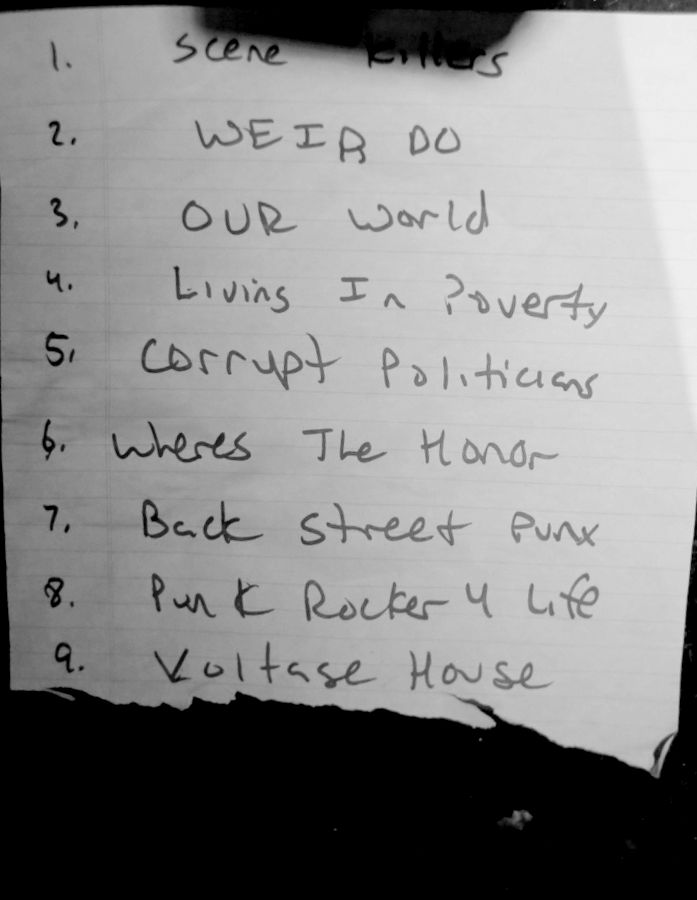 1. Scene Killers
2. WEIR DO
3. OUR World
4. Living In Poverty
5. Corrupt Politicians
6. Wheres The Honor
7. Back Street Punx
8. Punk Rocker 4 Life
9. Voltage House